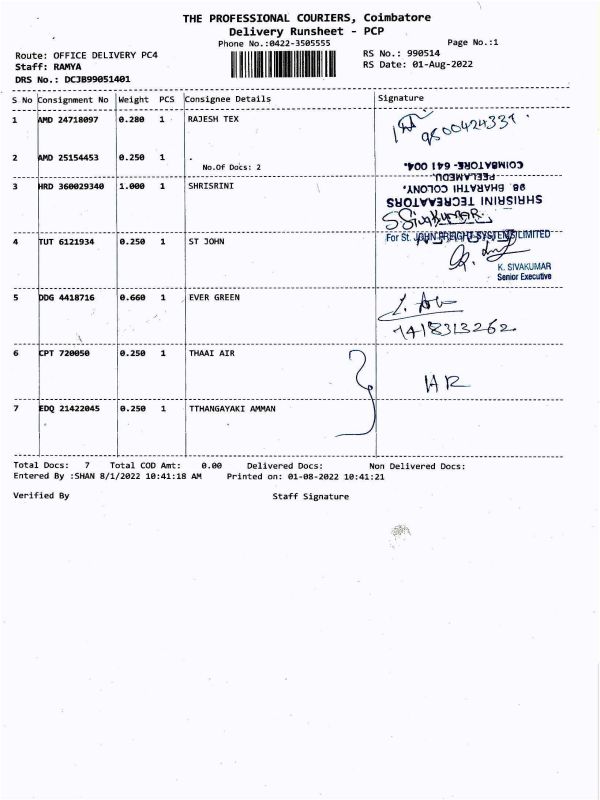 THE PROFESSIONAL COURIERS, Coimbatore
Delivery Runsheet - PCP
Phone No.:0422-3505555
Page No.:1
Route: OFFICE DELIVERY PC4
RS No.: 990514
Staff: RAMYA
RS Date: 01-Aug-2022
DRS No.: DCJB99051401
S No Consignment No Weight PCS Consignee Details Signature
1 AMD 24718097 0.280 1 RAJESH TEX
2 AMD 25154453 0.250 1 .
No.Of Docs: 2
3 HRD 360029340 1.000 1 SHRISRINI
SHRISRINI TECREAATORS
98, BHARATHI COLONY,
PEELAMEDU,
COIMBATORE- 641 004.
S SIVAKUMAR.
4 TUT 6121934 0.250 1 ST JOHN
For St. JOHN FREIGHT SYSTEMS LIMITED
K. SIVAKUMAR
Senior Executive
5 DDG 4418716 0.660 1 EVER GREEN
7418313262
6 CPT 720050 0.250 1 THAAI AIR
7 EDQ 21422045 0.250 1 TTHANGAYAKI AMMAN
Total Docs: 7 Total COD Amt: 0.00 Delivered Docs: Non Delivered Docs:
Entered By :SHAN 8/1/2022 10:41:18 AM Printed on: 01-08-2022 10:41:21
Verified By Staff Signature